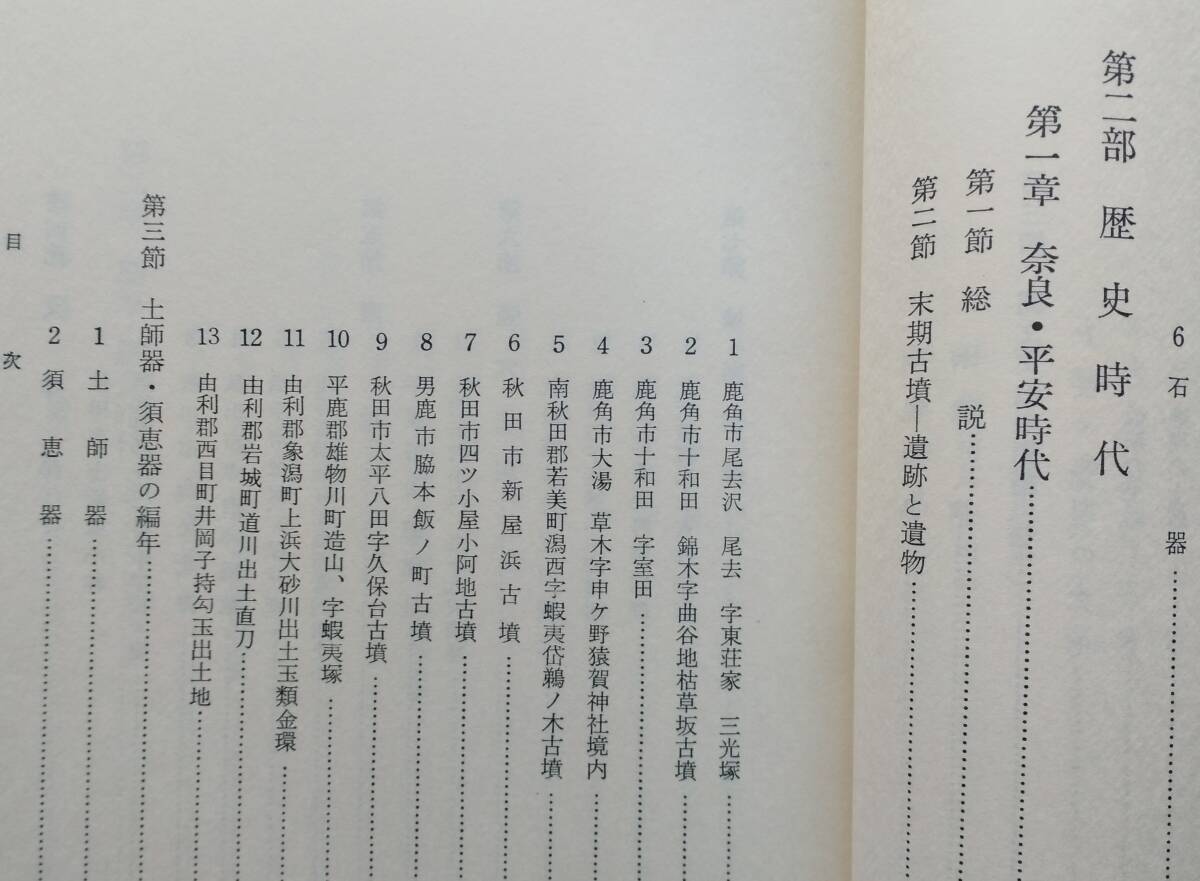 6 石器……
第二部 歴史時代
第一章 奈良・平安時代……
第一節 総説……
第二節 末期古墳―遺跡と遺物……
1 鹿角市尾去沢 尾去 字東荘家 三光塚……
2 鹿角市十和田 錦木字曲谷地枯草坂古墳……
3 鹿角市十和田 字室田……
4 鹿角市大湯 草木字申ケ野猿賀神社境内……
5 南秋田郡若美町潟西字蝦夷岱鵜ノ木古墳……
6 秋田市新屋浜古墳……
7 秋田市四ツ小屋小阿地古墳……
8 男鹿市脇本飯ノ町古墳……
9 秋田市太平八田字久保台古墳……
10 平鹿郡雄物川町造山、字蝦夷塚……
11 由利郡象潟町上浜大砂川出土玉類金環……
12 由利郡岩城町道川出土直刀……
13 由利郡西目町井岡子持勾玉出土地……
第三節 土師器・須恵器の編年……
1 土師器……
2 須恵器……
目次